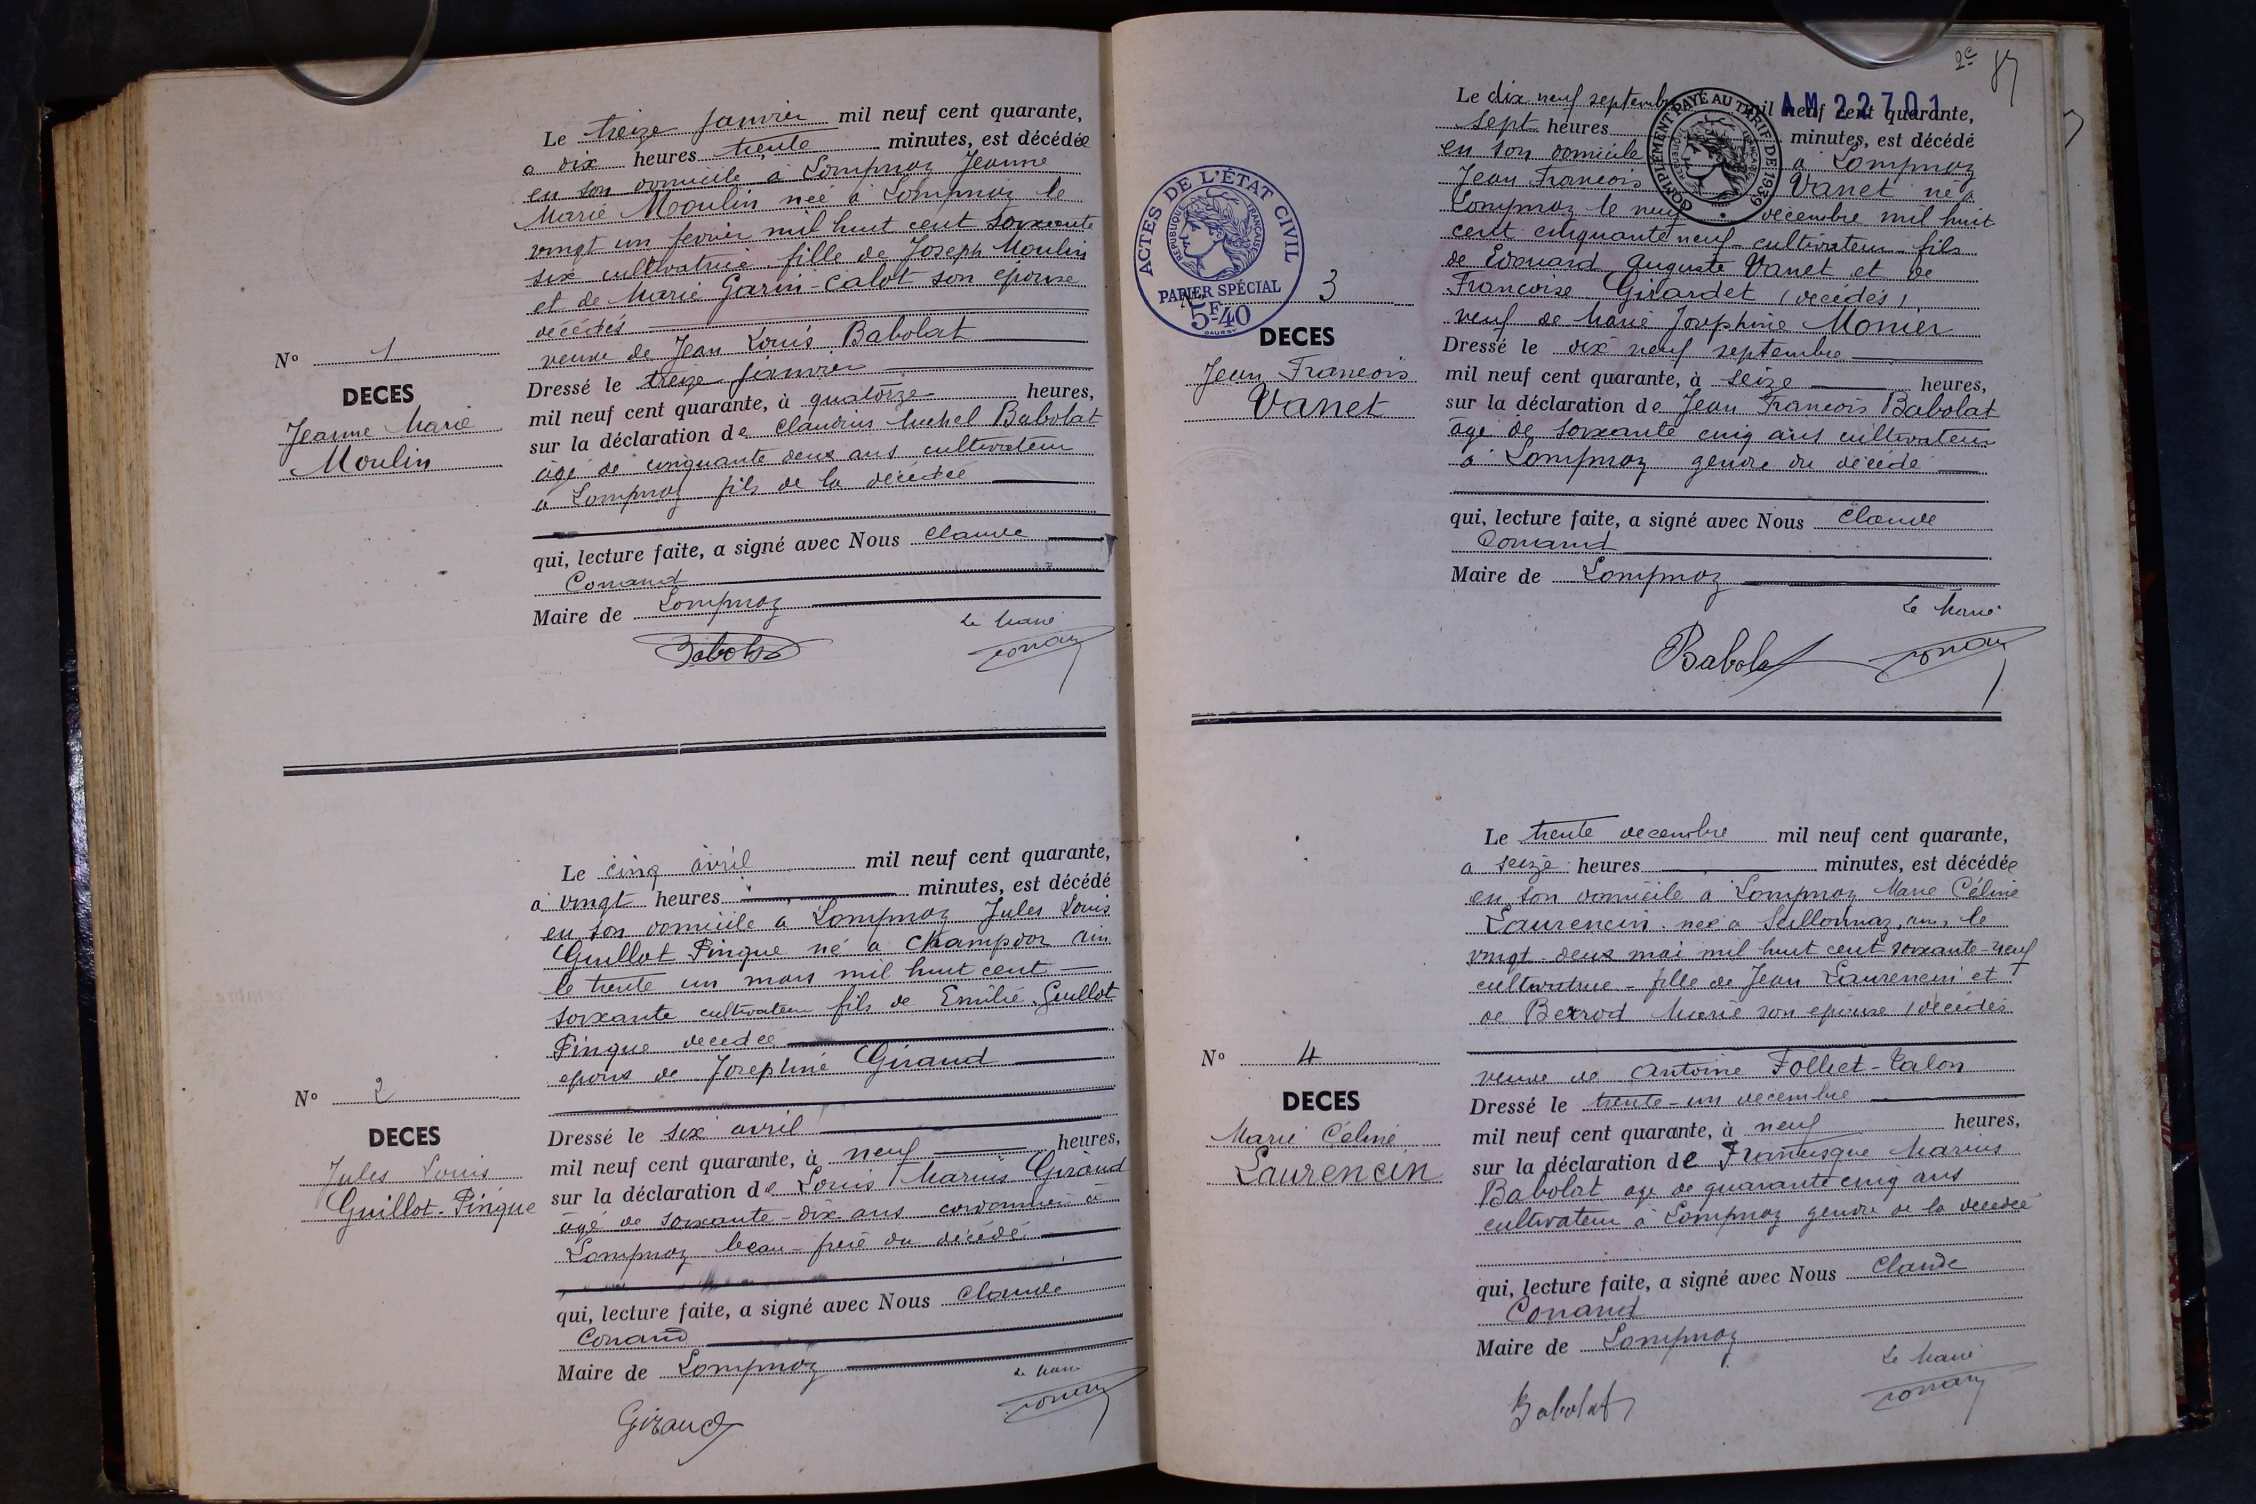 Le treize janvier mil neuf cent quarante,
a dix heures trente minutes, est décédée
en son domicile a Lompnaz Jeanne
Marie Moulin née à Lompnaz le
vingt un fevrier mil huit cent soixante
six cultivatrice fille de Joseph Moulin
et de Marie Garin-Calot son epouse
décédés
veuve de Jean Louis Babolat
Dressé le treize janvier
mil neuf cent quarante, à quatorze heures,
sur la déclaration de Claudius Michel Babolat
âgé de cinquante deux ans cultivateur
a Lompnaz fils de la décédée
qui, lecture faite, a signé avec Nous Claude
Conand
Maire de Lompnaz
Babolat
Le Maire
Conand
N° 1
DECES
Jeanne Marie
Moulin
Le cinq avril mil neuf cent quarante,
a vingt heures minutes, est décédé
en son domicile a Lompnaz Jules Louis
Guillot Pingue né a Champdor Ain
le trente un mars mil huit cent
soixante cultivateur fils de Emilie Guillot
Pingue decedée
epoux de Josephine Giraud
Dressé le six avril
mil neuf cent quarante, à neuf heures,
sur la déclaration de Louis Marius Giraud
âgé de soixante-dix ans cordonnier à
Lompnaz beau-frere du décédé
qui, lecture faite, a signé avec Nous Claude
Conand
Maire de Lompnaz
Giraud
Le Maire
Conand
N° 2
DECES
Jules Louis
Guillot-Pingue
2e 87
AM 22701
COMPLÉMENT PAYÉ AU TARIF DE 1939
Le dix neuf septembre mil neuf cent quarante,
sept heures minutes, est décédé
en son domicile a Lompnaz
Jean Francois Vanet né a
Lompnaz le neuf decembre mil huit
cent cinquante neuf cultivateur fils
de Edouard Auguste Vanet et de
Francoise Girardet (décédés)
veuf de Marie Josephine Monier
Dressé le dix neuf septembre
mil neuf cent quarante, à seize heures,
sur la déclaration de Jean Francois Babolat
age de soixante cinq ans cultivateur
a Lompnaz gendre du décédé
qui, lecture faite, a signé avec Nous Claude
Conand
Maire de Lompnaz
Le Maire
Babolat
Conand
ACTES DE L'ÉTAT CIVIL
RÉPUBLIQUE FRANÇAISE
PAPIER SPÉCIAL
5F40
N° 3
DECES
Jean Francois
Vanet
Le trente decembre mil neuf cent quarante,
a seize heures minutes, est décédée
en son domicile a Lompnaz Marie Céline
Laurencin née a Seillonnaz, Ain, le
vingt deux mai mil huit cent soixante-neuf
cultivatrice - fille de Jean Laurencin et
de Berrod Marie son epouse (decedés
veuve de Antoine Folliet-Talon
Dressé le trente-un decembre
mil neuf cent quarante, à neuf heures,
sur la déclaration de Francisque Marius
Babolat age de quarante cinq ans
cultivateur à Lompnaz gendre de la decedée
qui, lecture faite, a signé avec Nous Claude
Conand
Maire de Lompnaz
Le Maire
Babolat
Conand
N° 4
DECES
Marie Céline
Laurencin